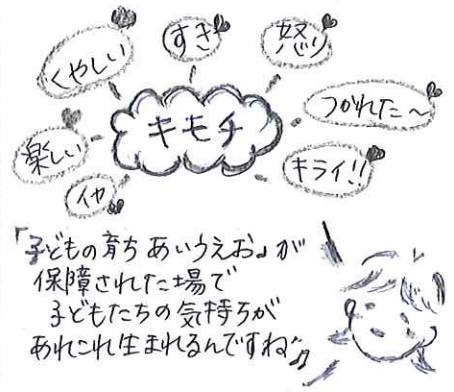 くやしい
すき
怒り
つかれた〜
キモチ
楽しい
キライ!!
イヤ
「子どもの育ち あいうえお」が
保障された場で
子どもたちの気持ちが
あれこれ生まれるんですね〜♫